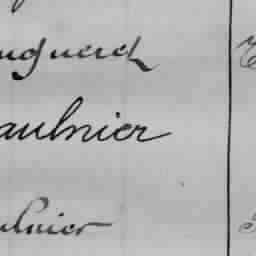 uguerel
aulnier
ulnier